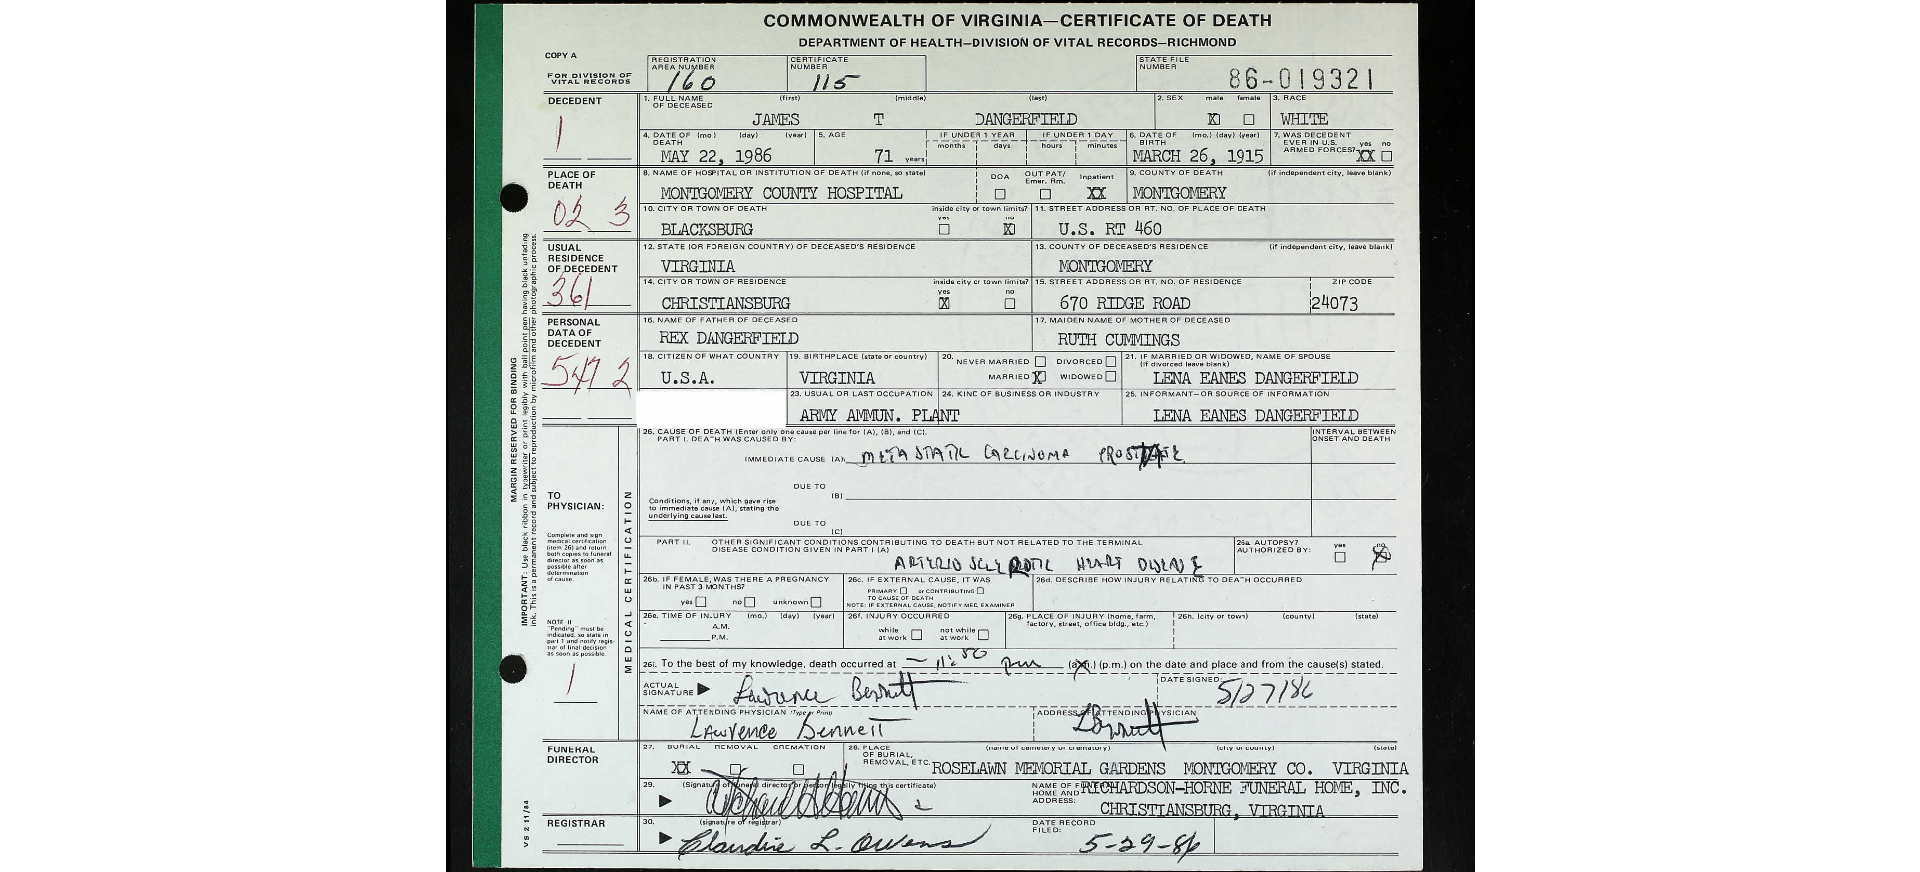 COMMONWEALTH OF VIRGINIA—CERTIFICATE OF DEATH
DEPARTMENT OF HEALTH—DIVISION OF VITAL RECORDS—RICHMOND
COPY A
FOR DIVISION OF VITAL RECORDS
REGISTRATION AREA NUMBER 160
CERTIFICATE NUMBER 115
STATE FILE NUMBER 86-019321
DECEDENT
1
1. FULL NAME OF DECEASED (first) (middle) (last)
JAMES T DANGERFIELD
2. SEX male female
X
3. RACE
WHITE
4. DATE OF DEATH (mo) (day) (year)
MAY 22, 1986
5. AGE
71 years
IF UNDER 1 YEAR months days
IF UNDER 1 DAY hours minutes
6. DATE OF BIRTH (mo.) (day) (year)
MARCH 26, 1915
7. WAS DECEDENT EVER IN U.S. ARMED FORCES? yes no
XX
PLACE OF DEATH
02 3
8. NAME OF HOSPITAL OR INSTITUTION OF DEATH (if none, so state)
MONTGOMERY COUNTY HOSPITAL
DOA OUT PAT/ Emer. Rm. Inpatient
XX
9. COUNTY OF DEATH (if independent city, leave blank)
MONTGOMERY
10. CITY OR TOWN OF DEATH inside city or town limits? yes no
BLACKSBURG X
11. STREET ADDRESS OR RT. NO. OF PLACE OF DEATH
U.S. RT 460
USUAL RESIDENCE OF DECEDENT
361
12. STATE (OR FOREIGN COUNTRY) OF DECEASED'S RESIDENCE
VIRGINIA
13. COUNTY OF DECEASED'S RESIDENCE (if independent city, leave blank)
MONTGOMERY
14. CITY OR TOWN OF RESIDENCE inside city or town limits? yes no
CHRISTIANSBURG X
15. STREET ADDRESS OR RT. NO. OF RESIDENCE ZIP CODE
670 RIDGE ROAD 24073
PERSONAL DATA OF DECEDENT
547 2
16. NAME OF FATHER OF DECEASED
REX DANGERFIELD
17. MAIDEN NAME OF MOTHER OF DECEASED
RUTH CUMMINGS
18. CITIZEN OF WHAT COUNTRY
U.S.A.
19. BIRTHPLACE (state or country)
VIRGINIA
20. NEVER MARRIED DIVORCED
MARRIED X WIDOWED
21. IF MARRIED OR WIDOWED, NAME OF SPOUSE (if divorced leave blank)
LENA EANES DANGERFIELD
23. USUAL OR LAST OCCUPATION
24. KIND OF BUSINESS OR INDUSTRY
ARMY AMMUN. PLANT
25. INFORMANT—OR SOURCE OF INFORMATION
LENA EANES DANGERFIELD
MARGIN RESERVED FOR BINDING
IMPORTANT: Use black ribbon in typewriter or print legibly with ball point pen having black unfading ink. This is a permanent record and subject to reproduction by microfilm and other photographic process.
MEDICAL CERTIFICATION
TO PHYSICIAN:
Complete and sign medical certification (item 26) and return both copies to funeral director as soon as possible after determination of cause.
NOTE II
"Pending" must be indicated, so state in part 1 and notify registrar of final decision as soon as possible.
1
26. CAUSE OF DEATH (Enter only one cause per line for (A), (B), and (C).
PART I. DEATH WAS CAUSED BY:
INTERVAL BETWEEN ONSET AND DEATH
IMMEDIATE CAUSE (A) METASTATIC CARCINOMA PROSTATE
DUE TO (B)
Conditions, if any, which gave rise to immediate cause (A), stating the underlying cause last.
DUE TO (C)
PART II. OTHER SIGNIFICANT CONDITIONS CONTRIBUTING TO DEATH BUT NOT RELATED TO THE TERMINAL DISEASE CONDITION GIVEN IN PART I (A)
ARTERIOSCLEROTIC HEART DISEASE
26a. AUTOPSY? AUTHORIZED BY: yes no
26b. IF FEMALE, WAS THERE A PREGNANCY IN PAST 3 MONTHS?
yes no unknown
26c. IF EXTERNAL CAUSE, IT WAS
PRIMARY or CONTRIBUTING
TO CAUSE OF DEATH
NOTE: IF EXTERNAL CAUSE, NOTIFY MED. EXAMINER
26d. DESCRIBE HOW INJURY RELATING TO DEATH OCCURRED
26e. TIME OF INJURY (mo.) (day) (year)
A.M.
P.M.
26f. INJURY OCCURRED
while at work not while at work
26g. PLACE OF INJURY (home, farm, factory, street, office bldg., etc.)
26h. (city or town) (county) (state)
26i. To the best of my knowledge, death occurred at 11:50 pm (a.m.) (p.m.) on the date and place and from the cause(s) stated.
ACTUAL SIGNATURE Lawrence Bennett
DATE SIGNED: 5/27/86
NAME OF ATTENDING PHYSICIAN (Type or Print)
Lawrence Bennett
ADDRESS OF ATTENDING PHYSICIAN
LBennett
FUNERAL DIRECTOR
27. BURIAL REMOVAL CREMATION
XX
28. PLACE OF BURIAL, REMOVAL, ETC. (name of cemetery or crematory) (city or county) (state)
ROSELAWN MEMORIAL GARDENS MONTGOMERY CO. VIRGINIA
29. (Signature of funeral director or person legally filing this certificate)
NAME OF FUNERAL HOME AND ADDRESS:
RICHARDSON-HORNE FUNERAL HOME, INC.
CHRISTIANSBURG, VIRGINIA
REGISTRAR
30. (signature of registrar)
Claudine L. Owens
DATE RECORD FILED:
5-29-86
VS 2 11/84